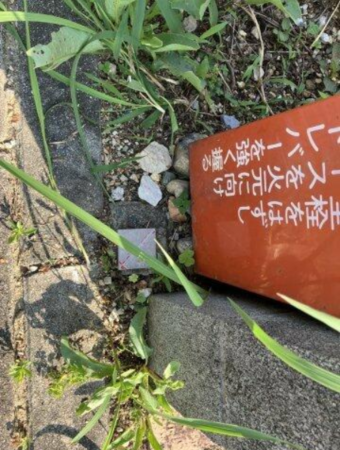 栓をはずし
ースを火元に向け
レバーを強く握る